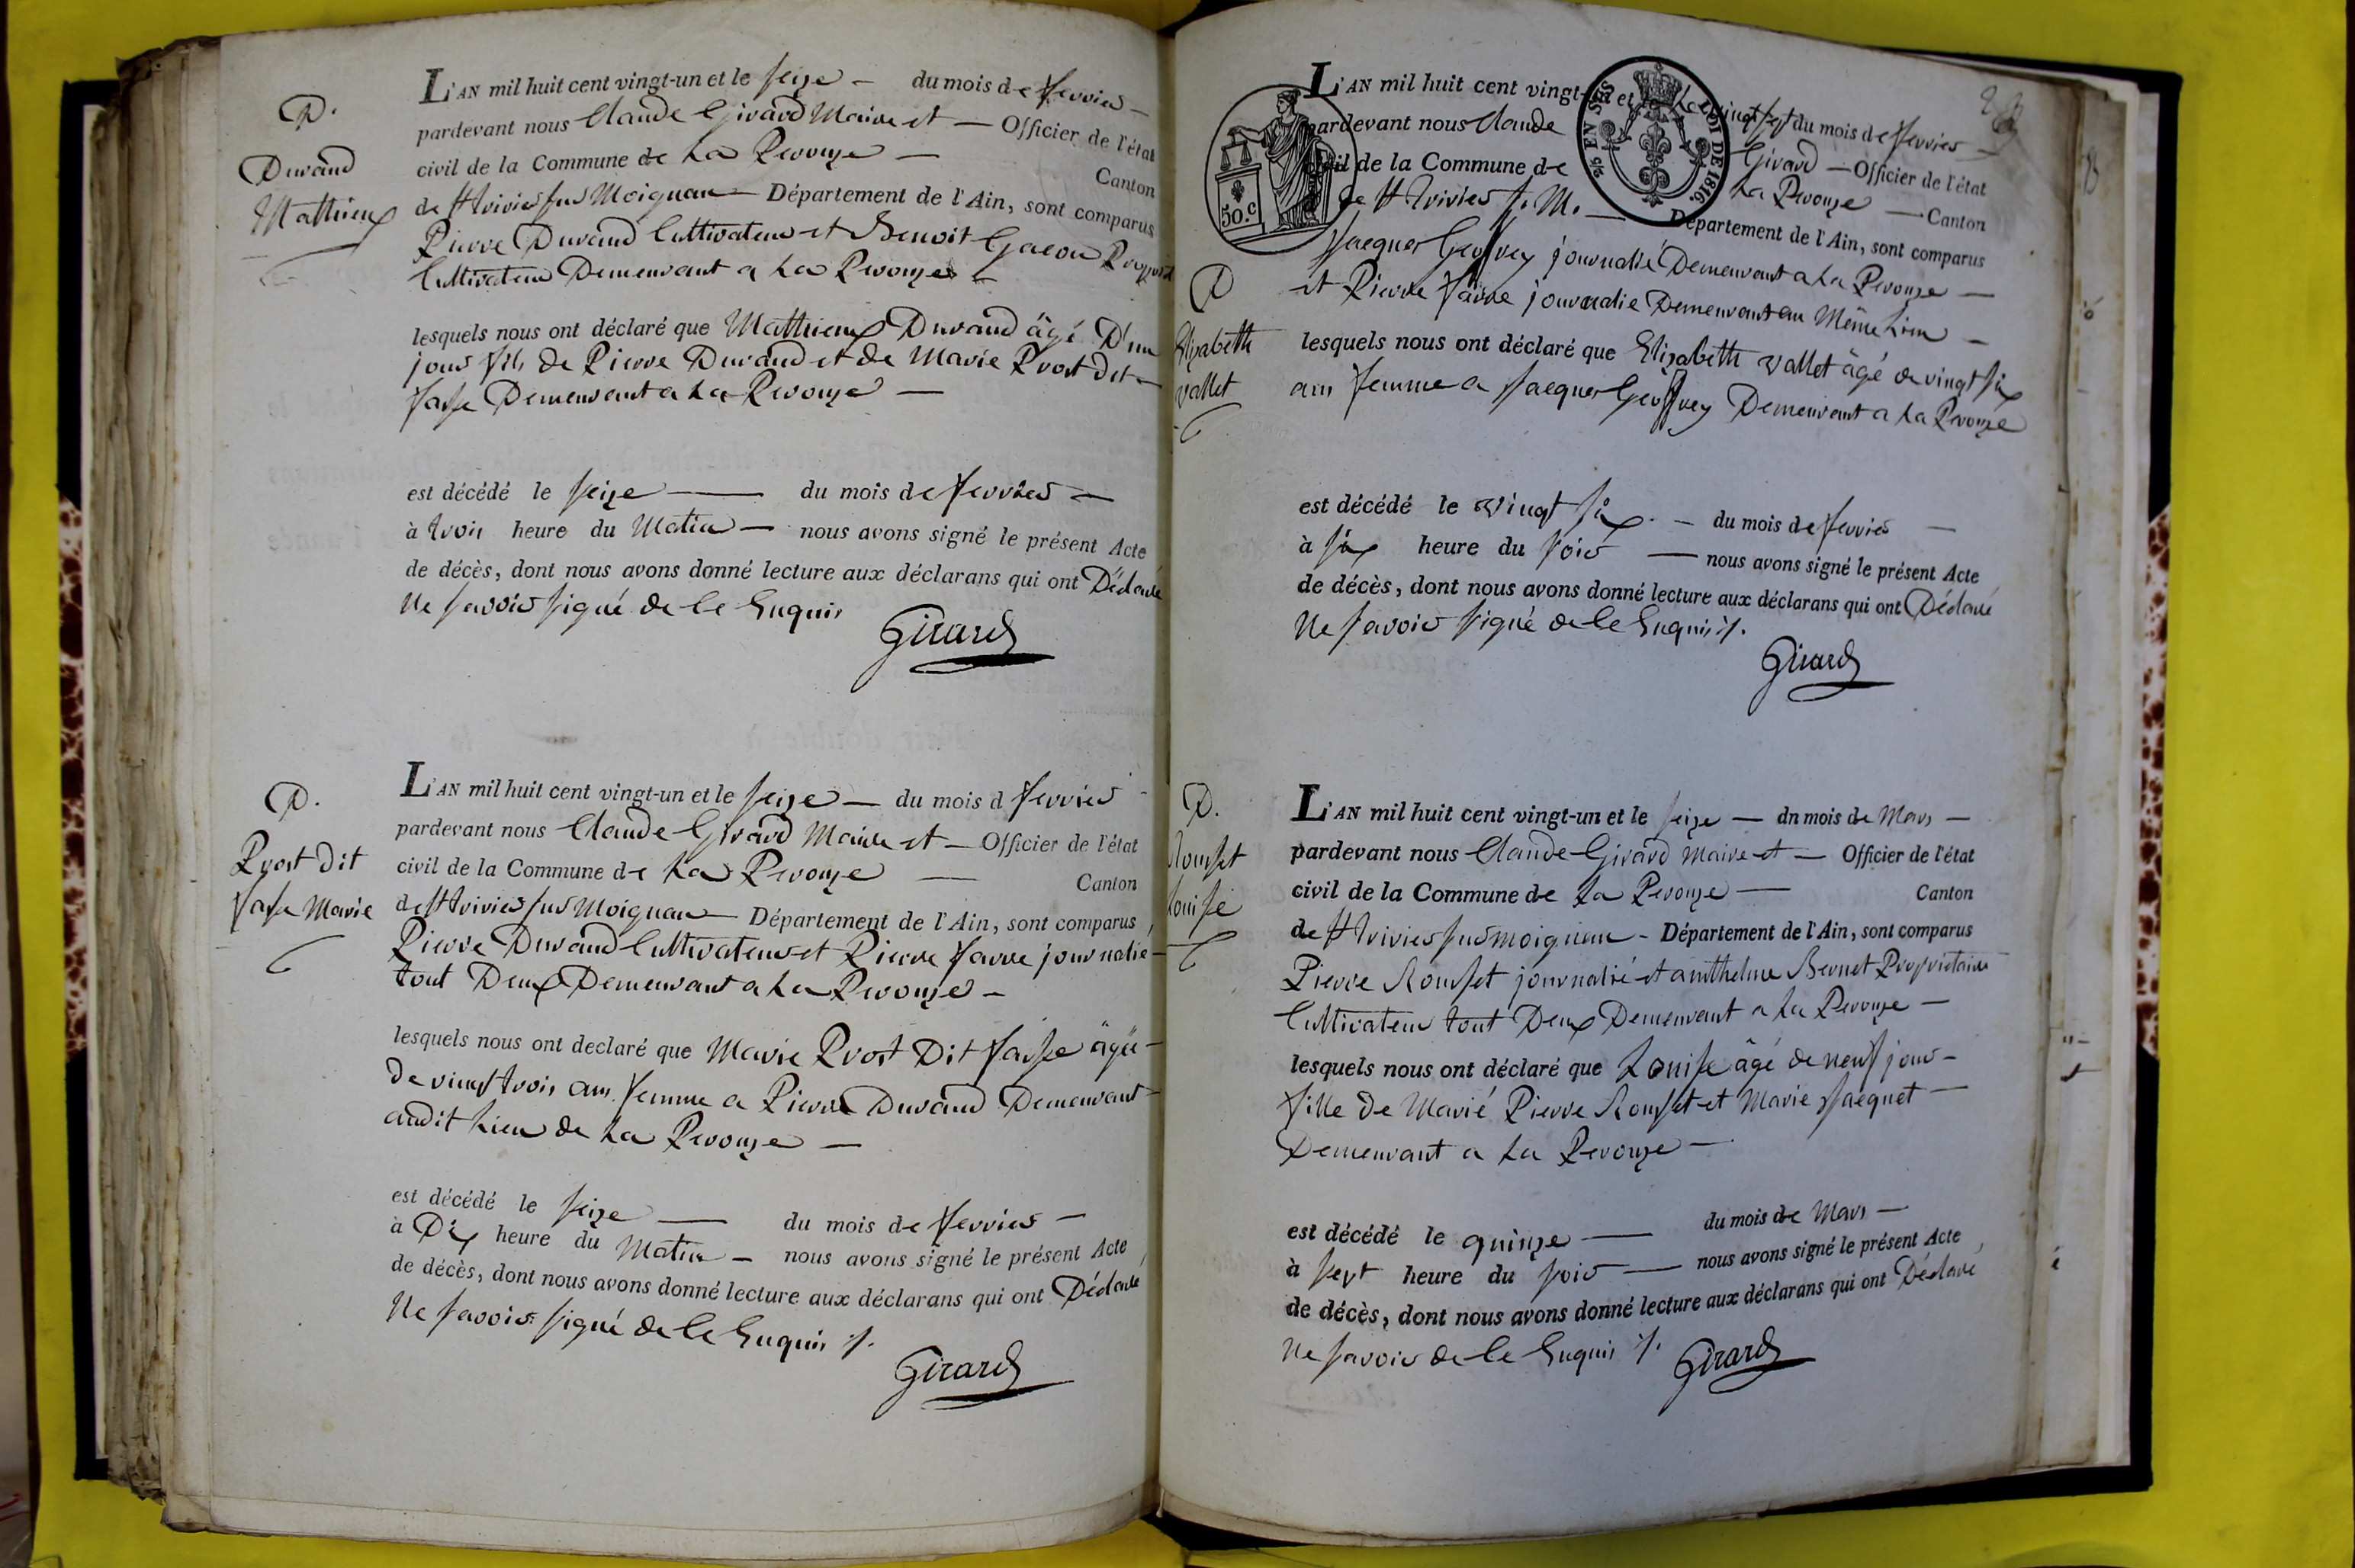 D.
Durand
Mathieux
L'AN mil huit cent vingt-un et le seize — du mois de fevrier —
pardevant nous Claude Girard Maire et — Officier de l'état
civil de la Commune de La Perouze — Canton
de St trivier sur Moignan — Département de l'Ain, sont comparus
Pierre Durand Cultivateur et Benoit Gacon
Cultivateur Demeurant a La Perouze —
lesquels nous ont déclaré que Mathieux Durand âgé D'un
jour fils de Pierre Durand et de Marie Prost dit —
fasse Demeurant a La Perouze —
est décédé le seize — du mois de fevrier —
à trois heure du Matin — nous avons signé le présent Acte
de décès, dont nous avons donné lecture aux déclarans qui ont Déclaré
Ne savoir signé de Ce Enquis
Girard
D.
Prost Dit
fasse Marie
L'AN mil huit cent vingt-un et le seize — du mois d fevrier
pardevant nous Claude Girard Maire et — Officier de l'état
civil de la Commune de La Perouze — Canton
de St trivier sur Moignan — Département de l'Ain, sont comparus
Pierre Durand Cultivateur et Pierre favre journalié —
tout Deux Demeurant a La Perouze —
lesquels nous ont declaré que Marie Prost Dit fasse âgée —
De vingt trois ans femme a Pierre Durand Demeurant —
audit Lieu de La Perouze —
est décédé le seize — du mois de fevrier —
à Dix heure du Matin — nous avons signé le présent Acte
de décès, dont nous avons donné lecture aux déclarans qui ont Déclaré
Ne savoir signé de Ce Enquis ./.
Girard
50.c
2/5 EN SUS LOI DE 1816.
D
Elizabeth
vallet
L'AN mil huit cent vingt-un et le vingt sept du mois de fevrier —
pardevant nous Claude Girard — Officier de l'état
civil de la Commune de La Perouze — Canton
de St trivier s. M. — Département de l'Ain, sont comparus
Jacques Geoffrey journalié Demeurant a La Perouze —
et Pierre favre journalie Demeurant au Même Lieu —
lesquels nous ont déclaré que Elizabeth vallet âgé de vingt six
ans femme a Jacques Geoffrey Demeurant a La Perouze
est décédé le vingt six. — du mois de fevrier —
à six heure du soir — nous avons signé le présent Acte
de décès, dont nous avons donné lecture aux déclarans qui ont Déclaré
Ne savoir signé de Ce Enquis ./.
Girard
D.
Rousset
Louise
L'AN mil huit cent vingt-un et le seize — dn mois de Mars —
pardevant nous Claude Girard Maire et — Officier de l'état
civil de la Commune de La Perouze — Canton
de St trivier sur moignan — Département de l'Ain, sont comparus
Pierre Rousset journalié et anthelme Bernet Proprietaire
Cultivateur tout Deux Demeurant a La Perouze —
lesquels nous ont déclaré que Louise âgé de neuf jour —
fille de Marié Pierre Rousset et Marie Jacquet —
Demeurant a La Perouze —
est décédé le quinze — du mois de Mars —
à sept heure du soir — nous avons signé le présent Acte
de décès, dont nous avons donné lecture aux déclarans qui ont Déclaré
Ne savoir de Ce Enquis ./.
Girard